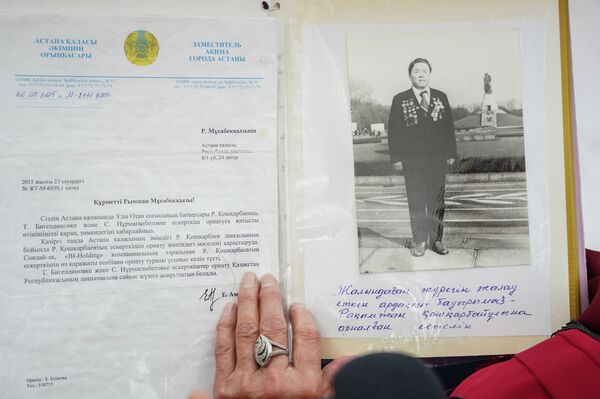 АСТАНА ҚАЛАСЫ
ӘКІМІНІҢ
ОРЫНБАСАРЫ
ЗАМЕСТИТЕЛЬ
АКИМА
ГОРОДА АСТАНЫ
Р. Мұсабекқызына
Астана қаласы,
6/1 үй, 24 пәтер
2015 жылғы 23 сәуірдегі
№ ЖТ-М-6039,1 хатқа
Құрметті Рымжан Мұсабекқызы!
Сіздің Астана қаласында Ұлы Отан соғысының батырлары Р. Қошқарбаевқа,
Т. Бигелдиновке және С. Нұрмағанбетовке ескерткіш орнатуға қатысты
өтінішіңізді қарап, төмендегіні хабарлаймыз.
Қазіргі таңда Астана қаласының әкімдігі Р. Қошқарбаев даңғылының
бойында Р. Қошқарбаевтың ескерткішін орнату жөніндегі мәселені қарастыруда.
Сондай-ақ, «BI-Holding» компаниясының тарапынан Р. Қошқарбаевтың
ескерткішін өз қаражаты есебінен орнату туралы ұсыныс келіп түсті.
Т. Бигелдиновке және С. Нұрмағанбетовке ескерткіштер орнату Қазақстан
Республикасының заңнамасына сәйкес жүзеге асырылатын болады.
Е. Ам
Орынд.: Б. Елікова
Тел.: 556715
Жалындаған жүрегін жалау
еткен ардақты бауырымыз -
Рақымжан Қошқарбайұлына
арналған естелік.